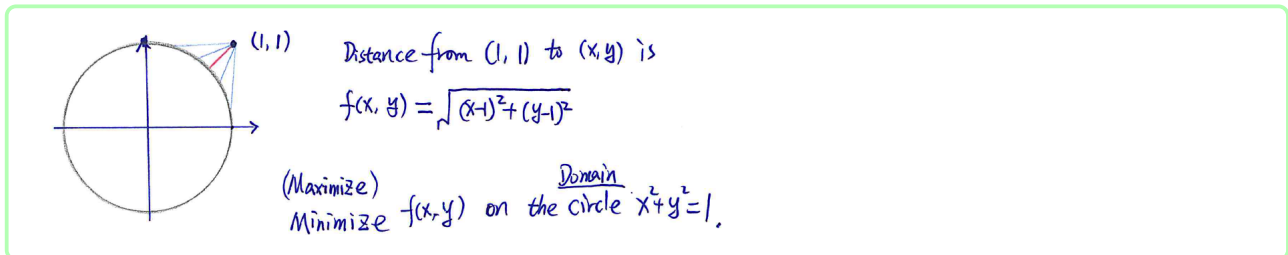 (1, 1)
Distance from (1, 1) to (x, y) is
f(x, y) = √(x-1)²+(y-1)²
(Maximize)
Domain
Minimize f(x, y) on the circle x²+y²=1.